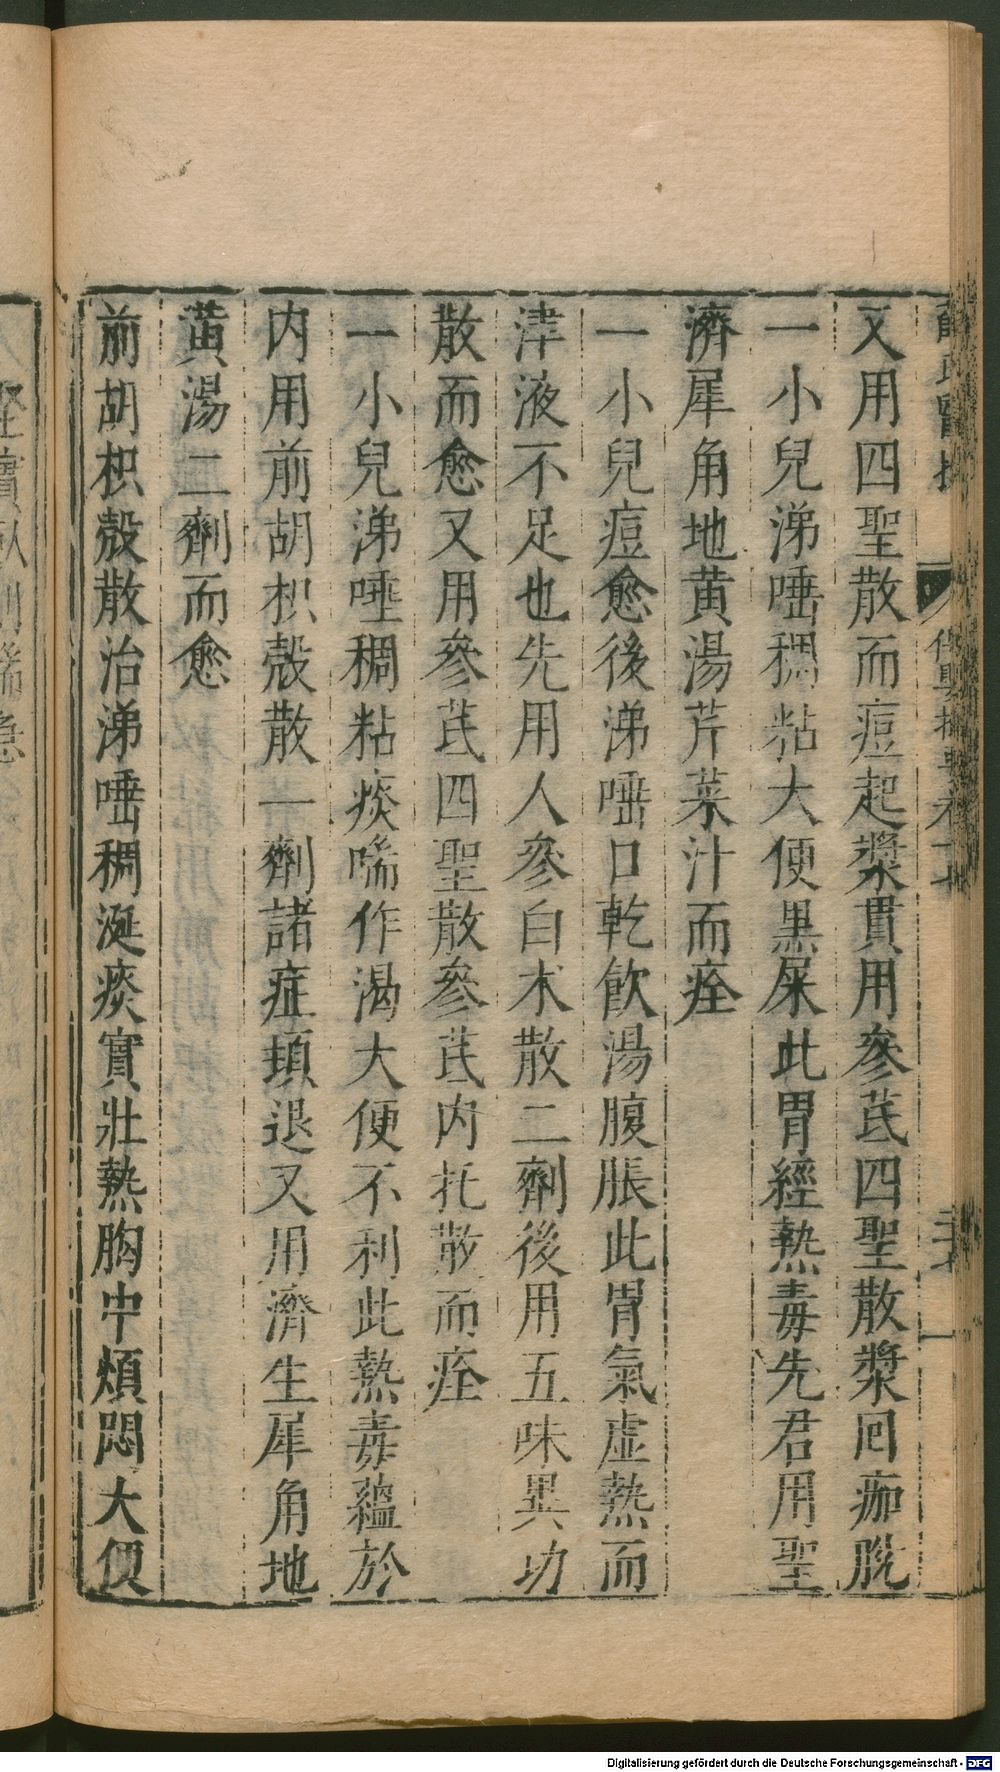 又用四聖散而痘起漿貫用參芪四聖散漿回痂脫
一小兒涕唾稠粘大便黑屎此胃經熱毒先君用聖
濟犀角地黄湯芹菜汁而痊
一小兒痘愈後涕唾口乾飲湯腹脹此胃氣虛熱而
津液不足也先用人參白朮散二劑後用五味異功
散而愈又用參芪四聖散參芪内托散而痊
一小兒涕唾稠粘痰喘作渴大便不利此熱毒蘊於
内用前胡枳殼散一劑諸症頓退又用濟生犀角地
黄湯二劑而愈
前胡枳殼散治涕唾稠涎痰實壯熱胸中煩悶大便
Digitalisierung gefördert durch die Deutsche Forschungsgemeinschaft - DFG